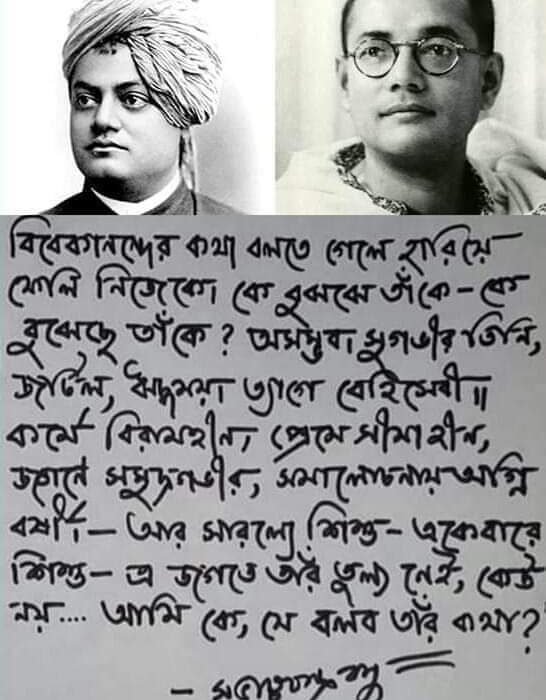 বিবেকানন্দের কথা বলতে গেলে হারিয়ে
ফেলি নিজেকে। কে বুঝবে তাঁকে – কে
বুঝেছে তাঁকে? অসম্ভব। সুগভীর তিনি,
জটিল, ঋদ্ধময়। ত্যাগে বেহিসেবী॥
কর্মে বিরামহীন, প্রেমে সীমাহীন,
জ্ঞানে সমুদ্রগভীর, সমালোচনায় অগ্নি
বর্ষী – আর সারল্যে শিশু – একেবারে
শিশু – এ জগতে তাঁর তুল্য নেই, কেউ
নয়.... আমি কে, যে বলব তাঁর কথা?
– সুভাষচন্দ্র বসু